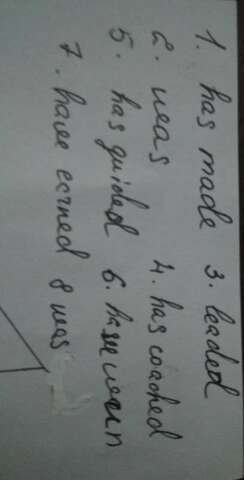 1. has made 3. leaded
2. was 4. has coached
5. has guided 6. have won
7. have earned 8 was